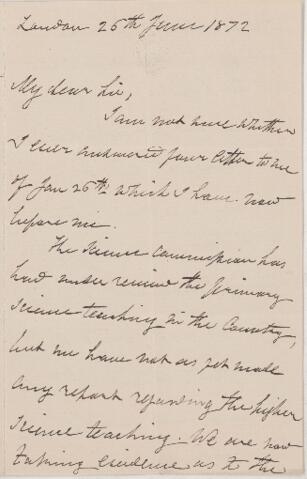 London 26th June 1872
My dear Sir,
I am not sure whether
I ever answered your letter to me
of Jan 26th which I have now
before me.
The Science Commission has
had under review the primary
Science teaching in the Country,
but we have not as yet made
any report regarding the higher
Science teaching. We are now
taking evidence as to the